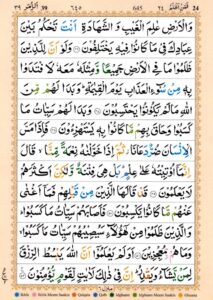 24 فمن اظلم ٢٤ 645 ٦٤٥ الزمر ٣٩ 39
وَالْاَرْضِ عٰلِمَ الْغَيْبِ وَالشَّهَادَةِ اَنْتَ تَحْكُمُ بَيْنَ
عِبَادِكَ فِيْ مَا كَانُوْا فِيْهِ يَخْتَلِفُوْنَ وَلَوْ اَنَّ لِلَّذِيْنَ
ظَلَمُوْا مَا فِي الْاَرْضِ جَمِيْعًا وَّمِثْلَهٗ مَعَهٗ لَافْتَدَوْا
بِهٖ مِنْ سُوْٓءِ الْعَذَابِ يَوْمَ الْقِيٰمَةِ وَبَدَا لَهُمْ مِّنَ
اللّٰهِ مَا لَمْ يَكُوْنُوْا يَحْتَسِبُوْنَ وَبَدَا لَهُمْ سَيِّاٰتُ مَا
كَسَبُوْا وَحَاقَ بِهِمْ مَّا كَانُوْا بِهٖ يَسْتَهْزِءُوْنَ فَاِذَا مَسَّ
الْاِنْسَانَ ضُرٌّ دَعَانَا ثُمَّ اِذَا خَوَّلْنٰهُ نِعْمَةً مِّنَّا قَالَ
اِنَّمَاۤ اُوْتِيْتُهٗ عَلٰى عِلْمٍ بَلْ هِيَ فِتْنَةٌ وَّلٰكِنَّ اَكْثَرَهُمْ
لَا يَعْلَمُوْنَ قَدْ قَالَهَا الَّذِيْنَ مِنْ قَبْلِهِمْ فَمَاۤ اَغْنٰى
عَنْهُمْ مَّا كَانُوْا يَكْسِبُوْنَ فَاَصَابَهُمْ سَيِّاٰتُ مَا كَسَبُوْا
وَالَّذِيْنَ ظَلَمُوْا مِنْ هٰۤؤُلَآءِ سَيُصِيْبُهُمْ سَيِّاٰتُ مَا كَسَبُوْا
وَمَا هُمْ بِمُعْجِزِيْنَ اَوَلَمْ يَعْلَمُوْۤا اَنَّ اللّٰهَ يَبْسُطُ الرِّزْقَ
لِمَنْ يَّشَآءُ وَيَقْدِرُ اِنَّ فِيْ ذٰلِكَ لَاٰيٰتٍ لِّقَوْمٍ يُّؤْمِنُوْنَ
Ikhfa Ikhfa Meem Saakin Qalqala Qalb Idghaam Idghaam Meem Saakin Ghunna